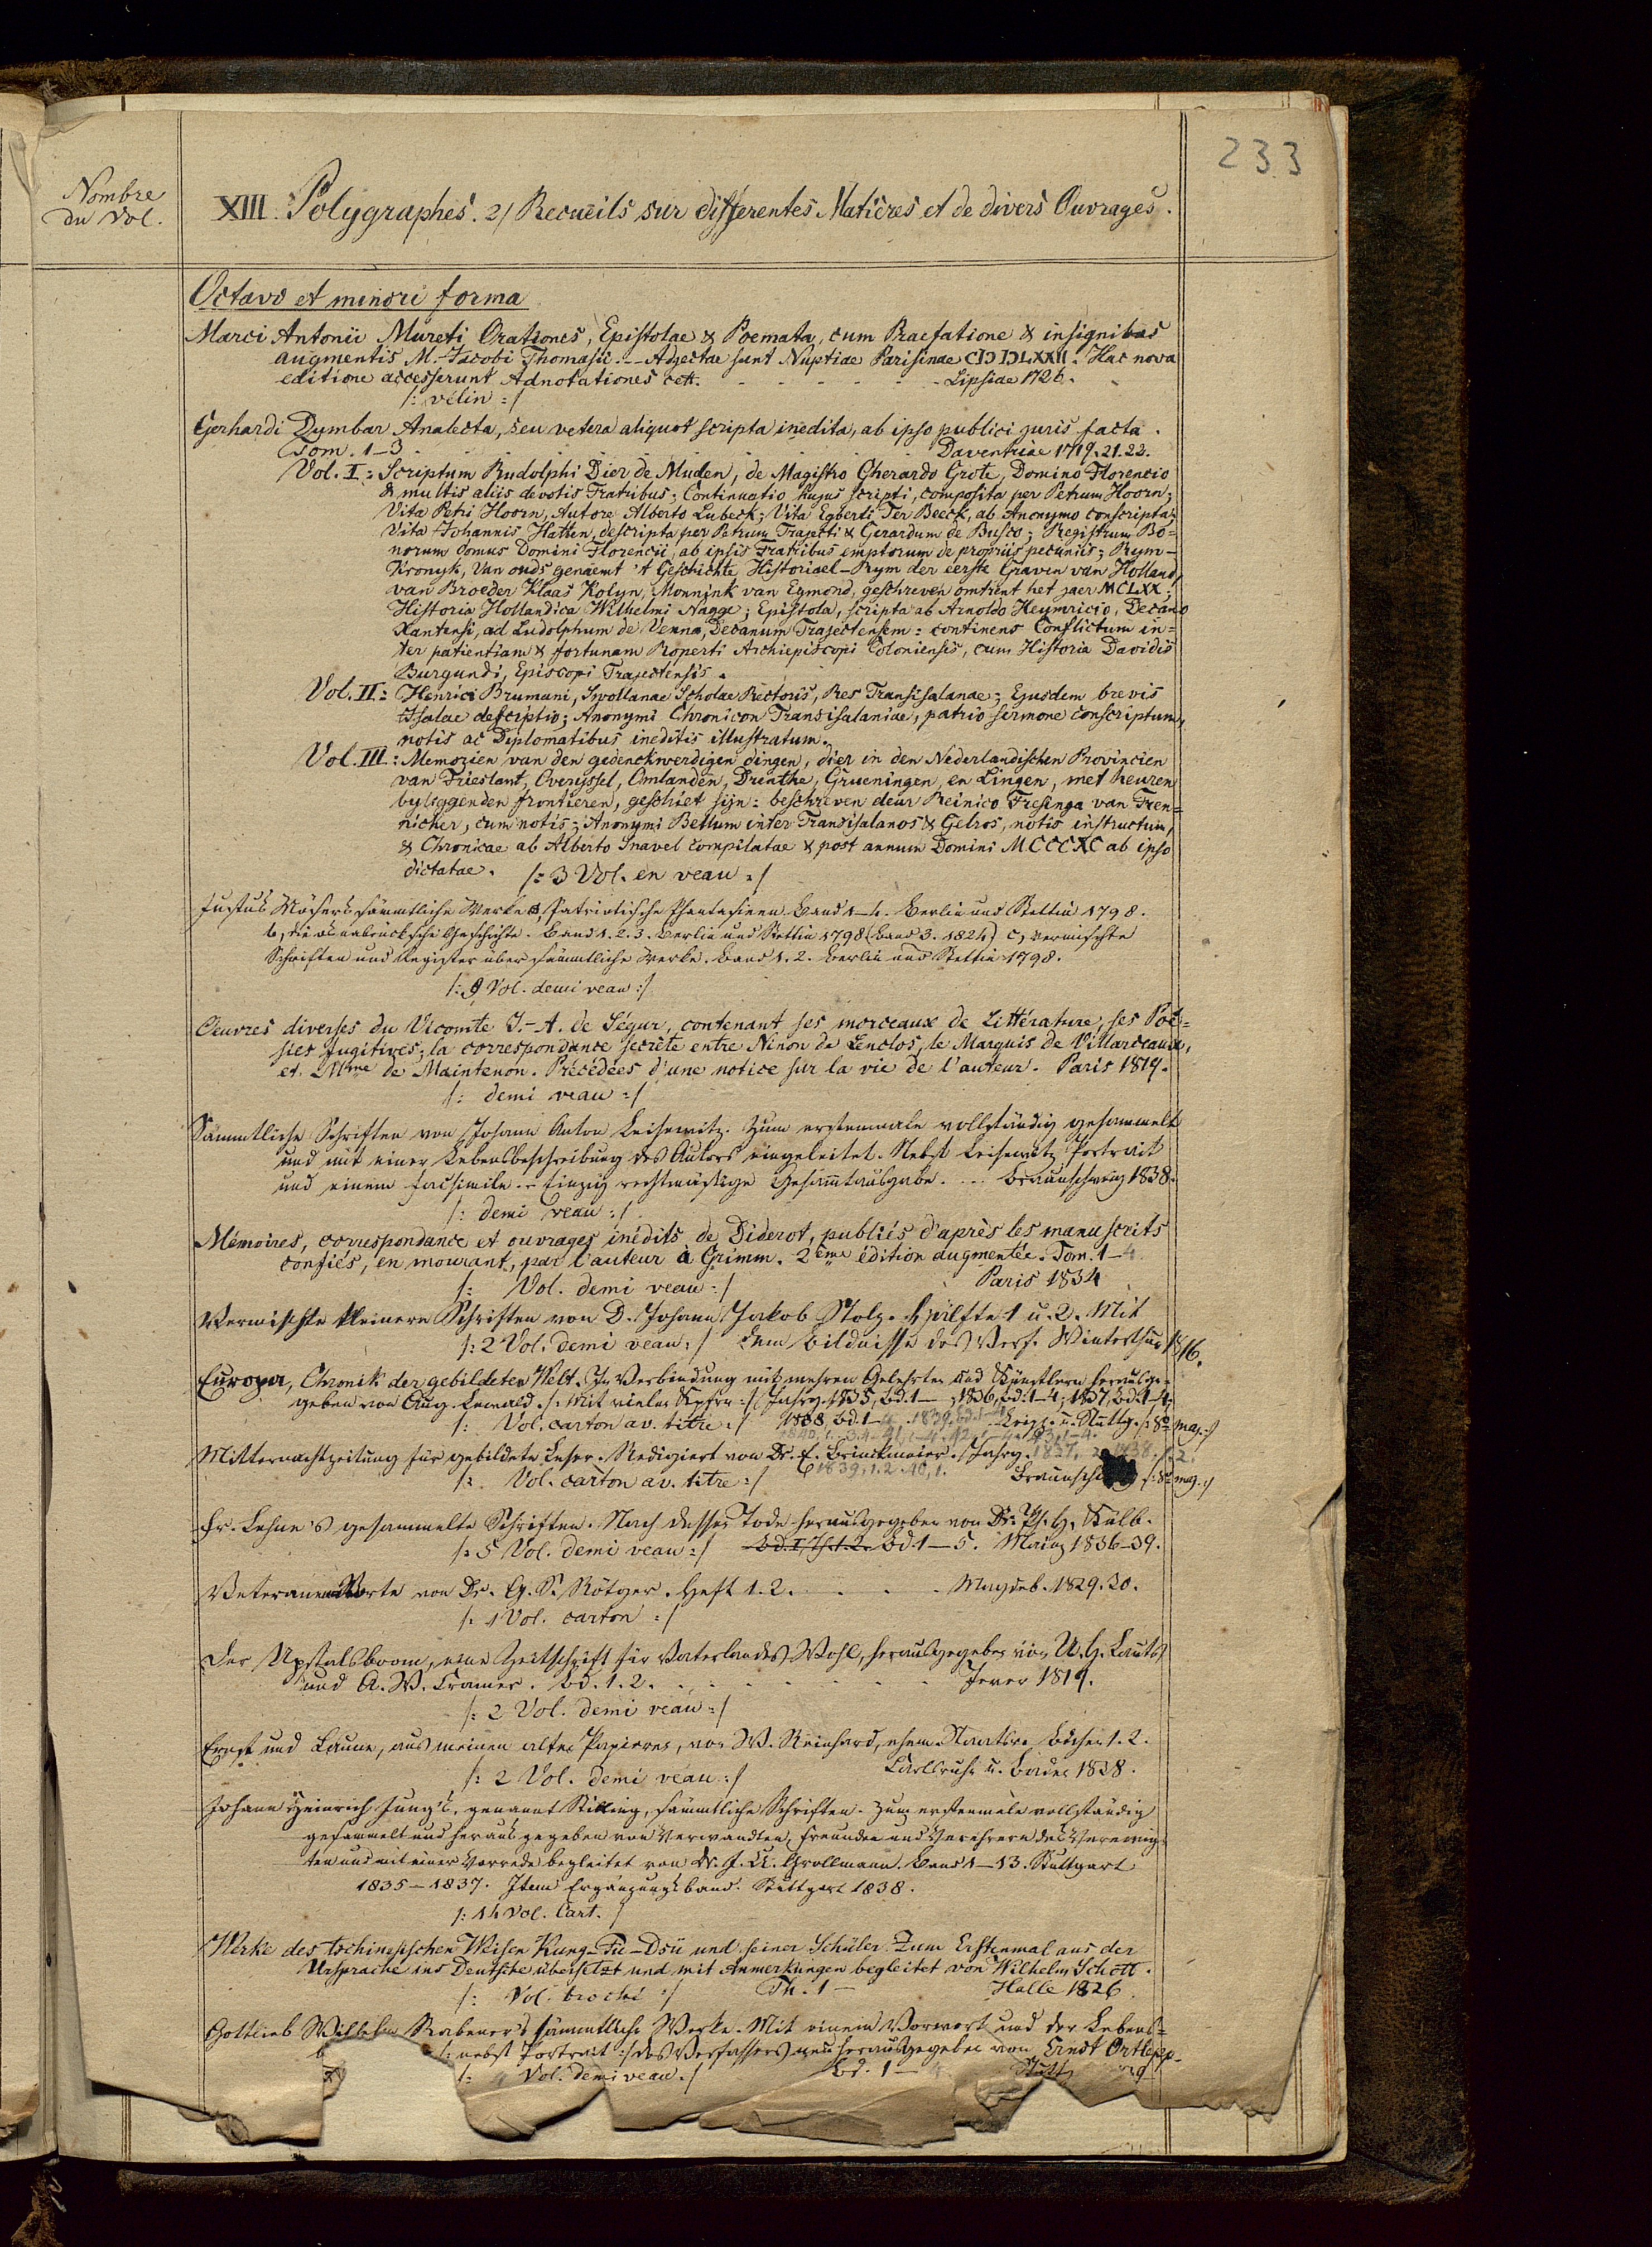 233
Nombre
du Vol.
XIII. Polygraphes. 2/ Recueils sur differentes Matières et de divers Ouvrages.
Octavo et minori forma
Marci Antonii Mureti Orationes, Epistolae & Poemata, cum Praefatione & insignibus
augmentis M. Jacobi Thomasii. – Adjectae sunt Nuptiae Parisinae CIↃ IↃLXXII. Hac nova
editione accesserunt Adnotationes cett. - - - - - - Lipsiae 1726.
/: velin :/
Gerhardi Dymbar Analecta, seu vetera aliquot scripta inedita, ab ipso publici juris facta.
Tom. 1–3 . . . . . . . . . Daventriae 1719. 21. 22.
Vol. I: Scriptum Rudolphi Dier de Muden, de Magistro Gherardo Grote, Domino Florencio
& multis aliis devotis Fratribus; Continuatio hujus scripti, composita per Petrum Hoorn;
Vita Petri Hoorn, Autore Alberto Lubeck; Vita Egberti Ter Beeck, ab Anonymo conscripta;
Vita Johannis Hatten, descripta per Petrum Trajecti & Gerardum de Busco; Registrum Bo=
norum domus Domini Florencii, ab ipsis Fratribus emptorum de propriis pecuniis; Rym-
Kronyk, Van ouds genaemt 't Geschichte Historiael-Rym der eerste Graven van Holland,
van Broeder Klaas Kolyn, Monnink van Egmond, geschreven omtrent het jaer MCLXX;
Historia Hollandica Wilhelmi Nagge; Epistola, scripta ab Arnoldo Heymricio, Decano
Xantensi, ad Ludolphum de Venna, Decanum Trajectensem: continens Conflictum in=
ter patientiam & fortunam Roperti Archiepiscopi Coloniensis, cum Historia Davidis
Burgundi, Episcopi Trajectensis.
Vol. II: Henrici Brumani, Swollanae Scholae Rectoris, Res Transisalanae; Ejusdem brevis
Isalae descriptio; Anonymi Chronicon Transisalaniae, patrio sermone conscriptum,
notis ac Diplomatibus ineditis illustratum.
Vol. III: Memorien van den gedenckwerdigen dingen, dier in den Nederlandischen Provincien
van Frieslant, Overyssel, Omlanden, Drenthe, Grueningen, en Lingen, met heuren
byliggenden frontieren, geschiet sijn: beschreven deur Reinico Fresinga van Fren=
nicher, cum notis; Anonymi Bellum inter Transisalanos & Gelros, notis instructum,
& Chronicae ab Alberto Snavel compilatae & post annum Domini MCCCXC ab ipso
dictatae. /: 3 Vol. en veau :/
Justus Mösers sämmtliche Werke a, Patriotische Phantasieen Band 1–4. Berlin und Stettin 1798.
b, die osnabrücksche Geschichte. Band 1. 2. 3. Berlin und Stettin 1798 (Band 3. 1824) c, vermischte
Schriften und Register über sämmtliche Werke. Band 1. 2. Berlin und Stettin 1798.
/: 9 Vol. demi veau :/
Oeuvres diverses du Vicomte J.-A. de Ségur, contenant ses morceaux de Littérature, ses Poë=
sies fugitives; la correspondance secrète entre Ninon de Lenclos, le Marquis de Villarceaux,
et Mme de Maintenon. Précédées d'une notice sur la vie de l'auteur. Paris 1819.
/: demi veau :/
Sämmtliche Schriften von Johann Anton Leisewitz. Zum erstenmale vollständig gesammelt
und mit einer Lebensbeschreibung des Autors eingeleitet. Nebst Leisewitz Portrait
und einem Facsimile. – Einzig rechtmäßige Gesammtausgabe. . . . Braunschweig 1838.
/: demi veau :/
Mémoires, correspondance et ouvrages inédits de Diderot, publiés d'après les manuscrits
confiés, en mourant, par l'auteur à Grimm. 2ème édition augmentée. Tom. 1–4
/: Vol. demi veau :/ Paris 1834
Vermischte kleinere Schriften von D. Johann Jakob Stolz. Hälfte 1 u. 2. Mit
/: 2 Vol. demi veau :/ dem Bildnisse des Verf. Winterthur 16.
Europa, Chronik der gebildeten Welt. In Verbindung mit mehren Gelehrten und Künstlern herausge=
geben von Aug. Lewald. /: Mit vielen Kpfrn :/ Jahrg. 1835, Bd. 1– ; 1836, Bd. 1–4; 1837, Bd. 1–4;
/: Vol. carton av. titre :/ 1838 Bd. 1–4. 1839. Bd. 1–4 Leipz. u. Stuttg. /: 8° maj. :/
1840, 1. 3. 4. 41, 1–4. 42, 1–4. 43, 1–4.
Mitternachtzeitung für gebildete Leser. Redigiert von Dr. E. Brinckmeier. Jahrg. 1837, 2. 1838. 1. 2.
/: Vol. carton av. titre :/ 1839, 1. 2. 40, 1. Braunsch g /: 8° maj. :/
Fr. Lehne's gesammelte Schriften. Nach dessen Tode herausgegeben von Dr. Ph. H. Külb.
/: 5 Vol. demi veau :/ Bd. I, Th. 1. 2. Bd. 1–5. Mainz 1836–39.
Veteranen Worte von Dr. G. S. Rötger. Heft 1. 2. . . . . Magdeb. 1829. 30.
/: 1 Vol. carton :/
Der Upstalsboom, eine Zeitschrift für Vaterlandes Wohl, herausgegeben von U. G. Lauts
und A. W. Cramer. Bd. 1. 2. . . . . . . . . Jever 1819.
/: 2 Vol. demi veau :/
Ernst und Laune, aus meinen alten Papieren, von W. Reinhard, ehem. Staatsr. Bdchen 1. 2.
/: 2 Vol. demi veau :/ Carlsruhe u. Baden 1838.
Johann Heinrich Jung's, genannt Stilling, sämmtliche Schriften. Zum erstenmale vollständig
gesammelt und herausgegeben von Verwandten, Freunden und Verehrern des Verewig=
ten und mit einer Vorrede begleitet von Dr. J. U. Grollmann. Band 1–13. Stuttgart
1835–1837. Item Ergänzungsband. Stuttgart 1838.
/: 14 Vol. Cart. /
Werke des tschinesischen Weisen Kung-Fu-Dsü und seiner Schüler. Zum Erstenmal aus der
Ursprache ins Deutsche übersetzt und mit Anmerkungen begleitet von Wilhelm Schott.
/: Vol. broché :/ Th. 1 – Halle 1826
Gottlieb Wilhelm Rabener's sämmtliche Werke. Mit einem Vorwort und der Lebens=
b /: nebst Portrait :/ des Verfassers neu herausgegeben von Ernst Ortlepp.
/: Vol. demi veau :/ Bd. 1 – Stutt